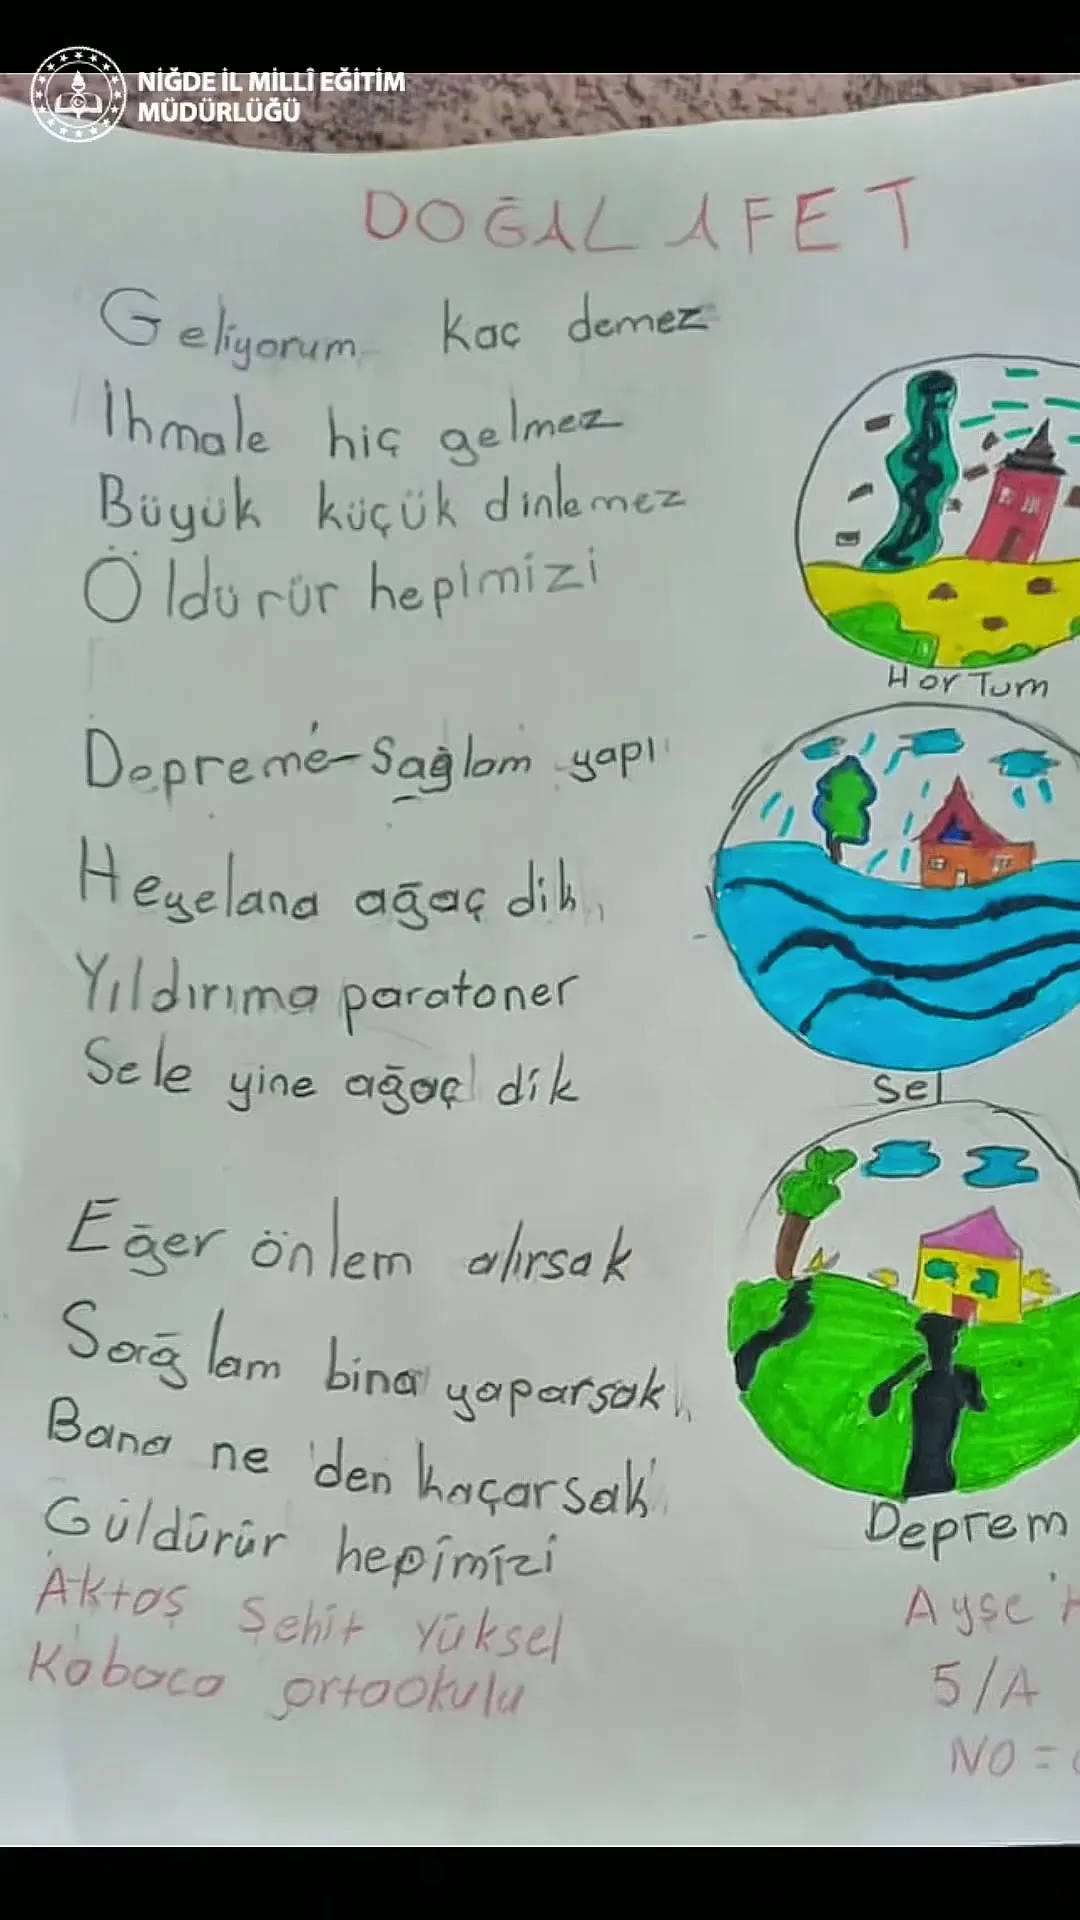 NİĞDE İL MİLLÎ EĞİTİM
MÜDÜRLÜĞÜ
DOĞAL AFET
Geliyorum kaç demez
İhmale hiç gelmez
Büyük küçük dinlemez
Öldürür hepimizi
Hortum
Depreme-Sağlam yapı
Heyelana ağaç dik
Yıldırıma paratoner
Sele yine ağaç dik
Sel
Eğer önlem alırsak
Sağlam bina yaparsak
Bana ne 'den kaçarsak
Güldürür hepimizi
Deprem
Aktaş Şehit Yüksel
Kabaca ortaokulu
Ayşe
5/A
NO =